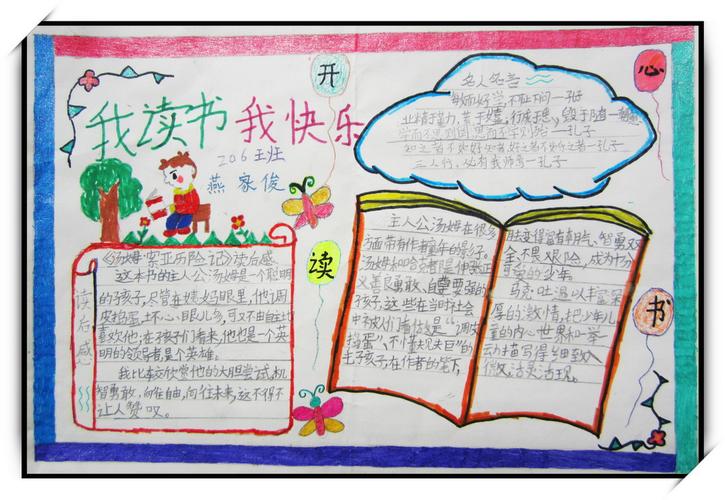 我读书 我快乐
206班
燕家俊
开
心
读
书
名人名言
敏而好学,不耻下问—孔子
业精于勤,荒于嬉,行成于思,毁于随—韩愈
学而不思则罔,思而不学则殆—孔子
知之者不如好知者,好之者不如乐之者—孔子
三人行,必有我师焉—孔子
读后感
《汤姆·索亚历险记》读后感
这本书的主人公汤姆是一个聪明
的孩子,尽管在姨妈眼里,他调
皮捣蛋
喜欢他;在孩子们看来,他也是一个英
明的领导者是个英雄。
我比较欣赏他的大胆尝试,机
智勇敢,向往自由,向往未来,这不得不
让人赞叹。
主人公汤姆在很多
方面带有作者童年的影子。
汤姆和哈克都是伸张正
义善良勇敢、自尊要强的
孩子,这些在当时社会
中被人们看做是“调皮
捣蛋”、不懂
孩子,在作者的笔下,
智勇双
全、不畏艰险,成为十分
可爱的少年
马克·吐温以丰富深
厚的激情,把少年儿
童的内心世界和一举一
动描写得细致入
微,活灵活现。